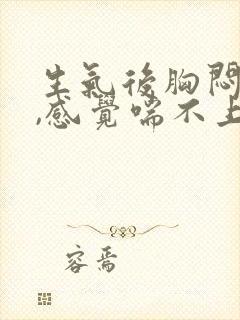 生氣後胸悶
,感覺喘不上
容焉